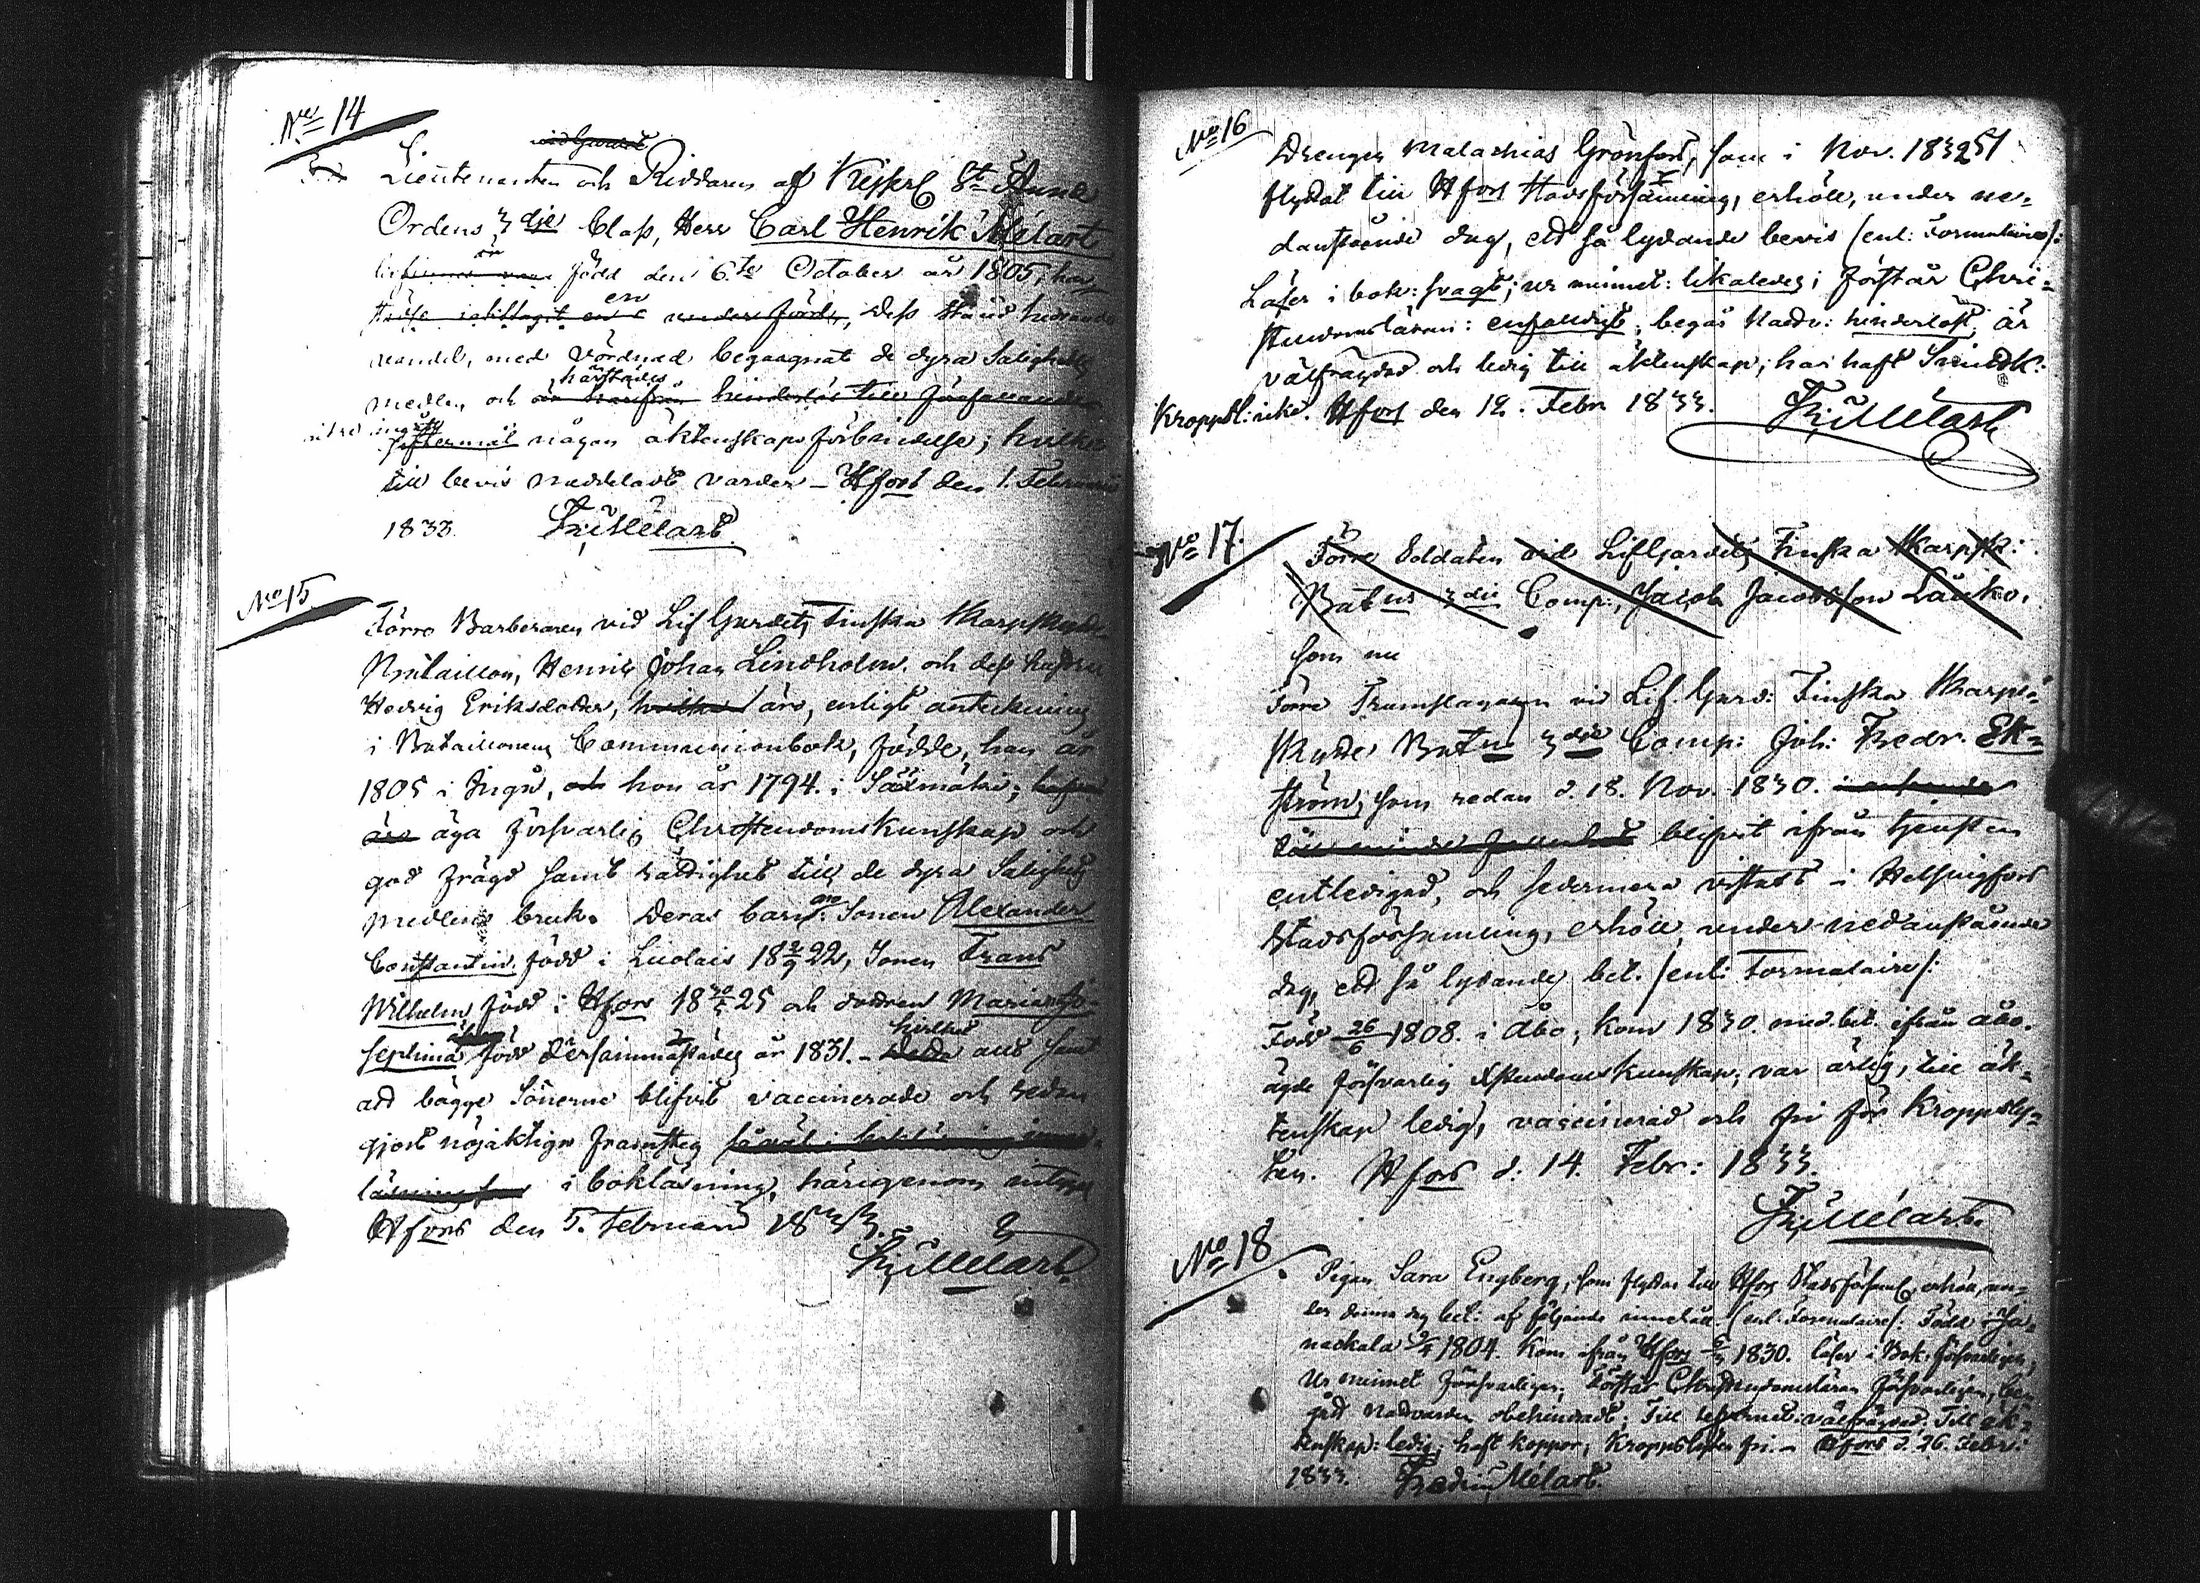 No 14
vid Gardet
Lieutenanten och Riddaren af Kejserl St Annæ
Ordens 3dje Class, Herr Carl Henrik Mélart
är
född den 6te October år 1805, har
en
dess stånd hedrande
vandel, med vördnad begagnat de dyra Salighets
härstädes
medlen, och
ingått
någon äktenskaps förbindelse; hvilket
till bevis meddeladt varder – Hfors den 1. Februarii
1833. Fr: Mélart.
No 15
Förre Barberaren vid Lif Gardets Finska Skarpskytte
Bataillon, Henrik Johan Lindholm och dess hustru
Hedvig Eriksdotter, hvilka äro, enligt anteckning
i Bataillonens Communionbok, födde, han år
1805 i Ingå, och hon år 1794 i Sääxmäki;
äro äga försvarlig Christendomskunskap och
god frägd samt rättighet till de dyra Salighets
medlens bruk. Deras barn: Sonen Alexander
Constantin född i Luolais 18 2/9 22, Sonen Frans
Wilhelm född i Hfors 18 25 och dottren Maria
Septima född dersammastädes år 1831. –
hvilket
att bägge Sönerne blifvit vaccinerade och redan
gjort nöjaktiga framsteg
i bokläsning, härigenom
Hfors den 5. Februarii 1833.
Fr: Mélart.
No 16
Drengen Malachias Grönfors, som i Nov. 1832
flyttat till Hfors Stadsförsamling, erhöll, under ne-
danstående dag, ett så lydande bevis (enl: Formulaire):
Läser i bok: svagt; ur minnet: likaledes; förstår Chri-
stendomsläran: enfaldigt; begår Nattv: hinderlöst; är
välfrägdad och ledig till äktenskap; har haft Smittk:
Kroppsl: icke. Hfors den 12. Febr 1833. Fr: Mélart
No 17.
Förre Soldaten vid LifGardets Finska Skarpsk:
Batns 3die Comp:, Jacob Jacobsson Lauko,
som nu
Förre Trumslagaren vid Lif. Gard: Finska Skarp-
skytte Batns 3die Comp: Joh: Fredr. Ek-
ström, som redan d. 18. Nov. 1830.
blifvit ifrån tjensten
entledigad, och sedermera vistats i Helsingfors
Stadsförsamling, erhöll, under nedanstående
dag, ett så lydande bet. (enl: Formulaire):
Född 26/6 1808. i Åbo; kom 1830. med bet. ifrån Åbo.
ägde försvarlig Xstendomskunskap, var ärlig, till äk-
tenskap ledig, vaccinerad och fri för Kroppsly-
ten. Hfors d. 14. Febr: 1833.
Fr: Mélart.
No 18
Pigan Sara Engberg, som flyttar till Hfors Stadsförsaml, erhöll, un-
der denna dag bet: af följande innehåll (enl: Formulaire): Född i Ja-
nackala 1804. Kom ifrån Hfors 1830. läser i Bok: försvarligen,
Ur minnet försvarligen; Förstår Christendomsläran försvarligen, be-
gått Nattvarden obehindradt; Till: välfrägdad. Till äk-
tenskap: ledig; haft koppor; Kroppslyten fri. – Hfors d. 26. Febr:
1833. Fredric Mélart.